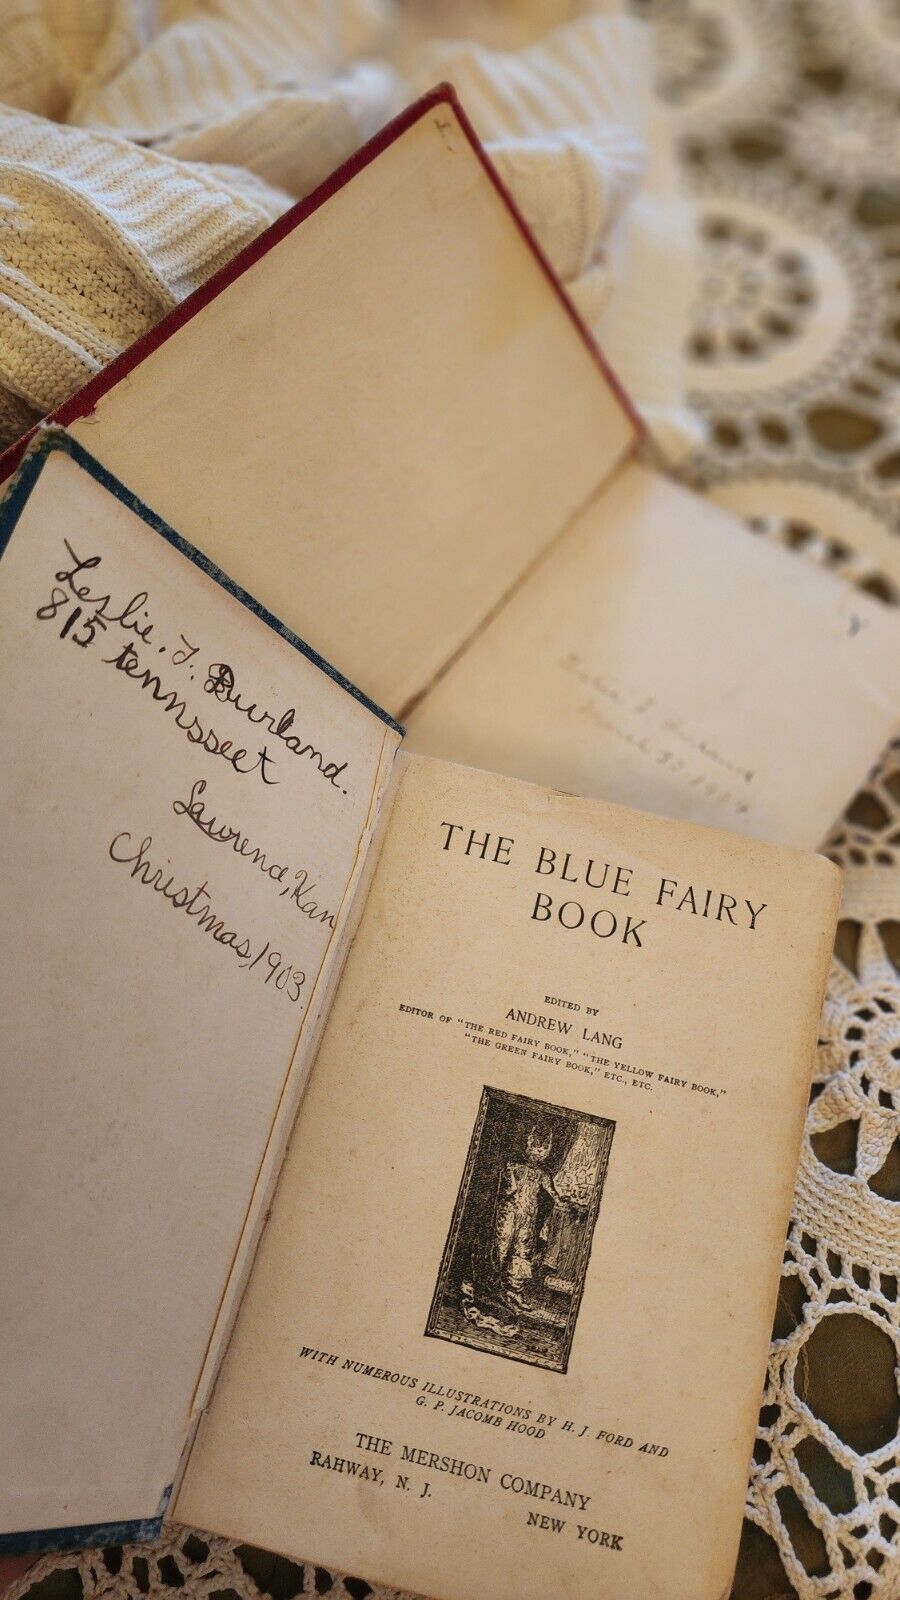 Leslie. F. Burland.
815 tennsseet
Lawrenc, Kan
Christmas, 1903.
THE BLUE FAIRY
BOOK
EDITED BY
ANDREW LANG
EDITOR OF "THE RED FAIRY BOOK," "THE YELLOW FAIRY BOOK,"
"THE GREEN FAIRY BOOK," ETC., ETC.
WITH NUMEROUS ILLUSTRATIONS BY H. J. FORD AND
G. P. JACOMB HOOD
THE MERSHON COMPANY
RAHWAY, N. J.
NEW YORK